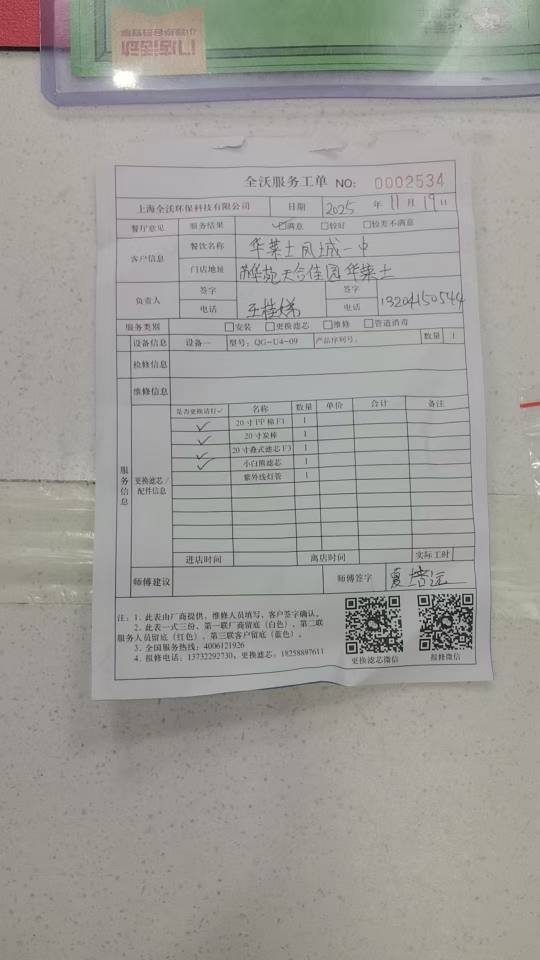 全沃服务工单 NO: 0002534
上海全沃环保科技有限公司 日期 2025 年 11 月 19 日
餐厅意见 服务结果 ☑满意 □较好 □较差不满意
客户信息 餐饮名称 华莱士凤城一中
门店地址 天合佳园华莱士
负责人 签字 签字
电话 王桂娣 电话 13204150544
服务类别 □安装 □更换滤芯 □维修 □管道消毒
设备信息 设备一 型号: QG-U4-09 产品序列号: 数量 1
检修信息
维修信息
服务信息 更换滤芯/配件信息 是否更换请打✓ 名称 数量 单价 合计 备注
✓ 20寸PP棉F1 1
✓ 20寸炭棒 1
✓ 20寸叠式滤芯F3 1
✓ 小白熊滤芯 1
紫外线灯管 1
进店时间 离店时间 实际工时
师傅建议 师傅签字
注: 1. 此表由厂商提供, 维修人员填写, 客户签字确认。
2. 此表一式三份, 第一联厂商留底(白色)、第二联
服务人员留底(红色)、第三联客户留底(蓝色)。
3. 全国服务热线: 4006121926
4. 报修电话: 13732292730, 更换滤芯: 18258887611
更换滤芯微信 报修微信